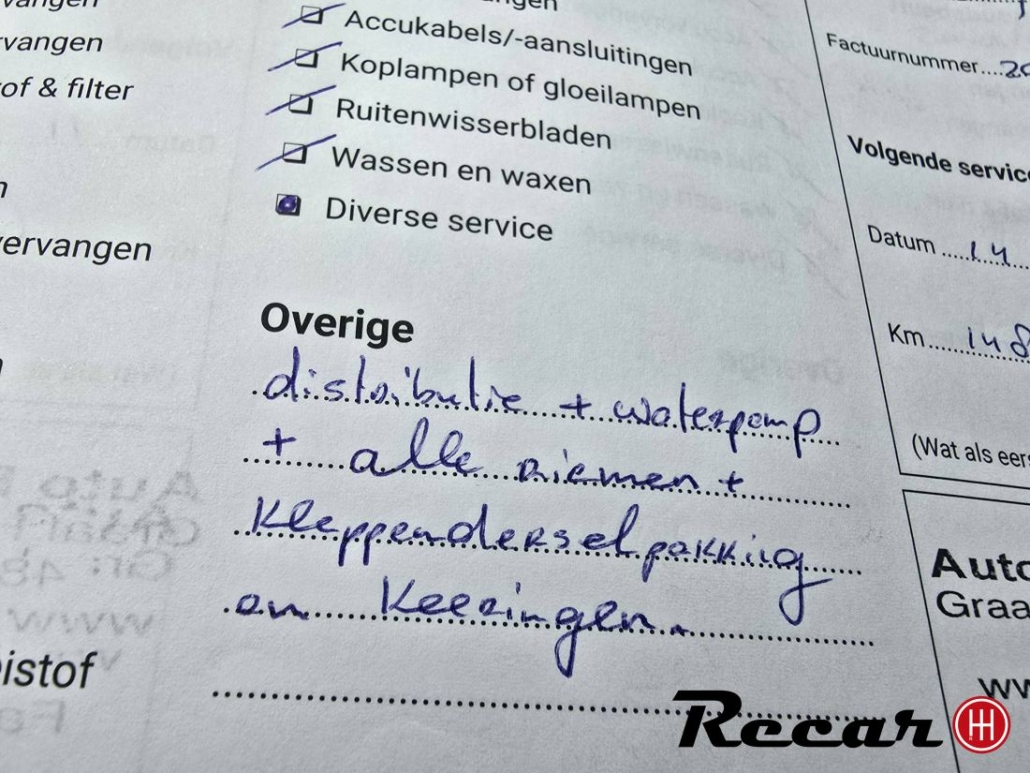 ervangen
rvangen
of & filter
ervangen
istof
ngen
Accukabels/-aansluitingen
Koplampen of gloeilampen
Ruitenwisserbladen
Wassen en waxen
Diverse service
Overige
distributie + waterpomp
+ alle riemen +
Kleppendekselpakking
en Keeringen.
Factuurnummer....20
Volgende service
Datum ....14
Km....148
(Wat als eers
Auto
Graa
ww
Recar